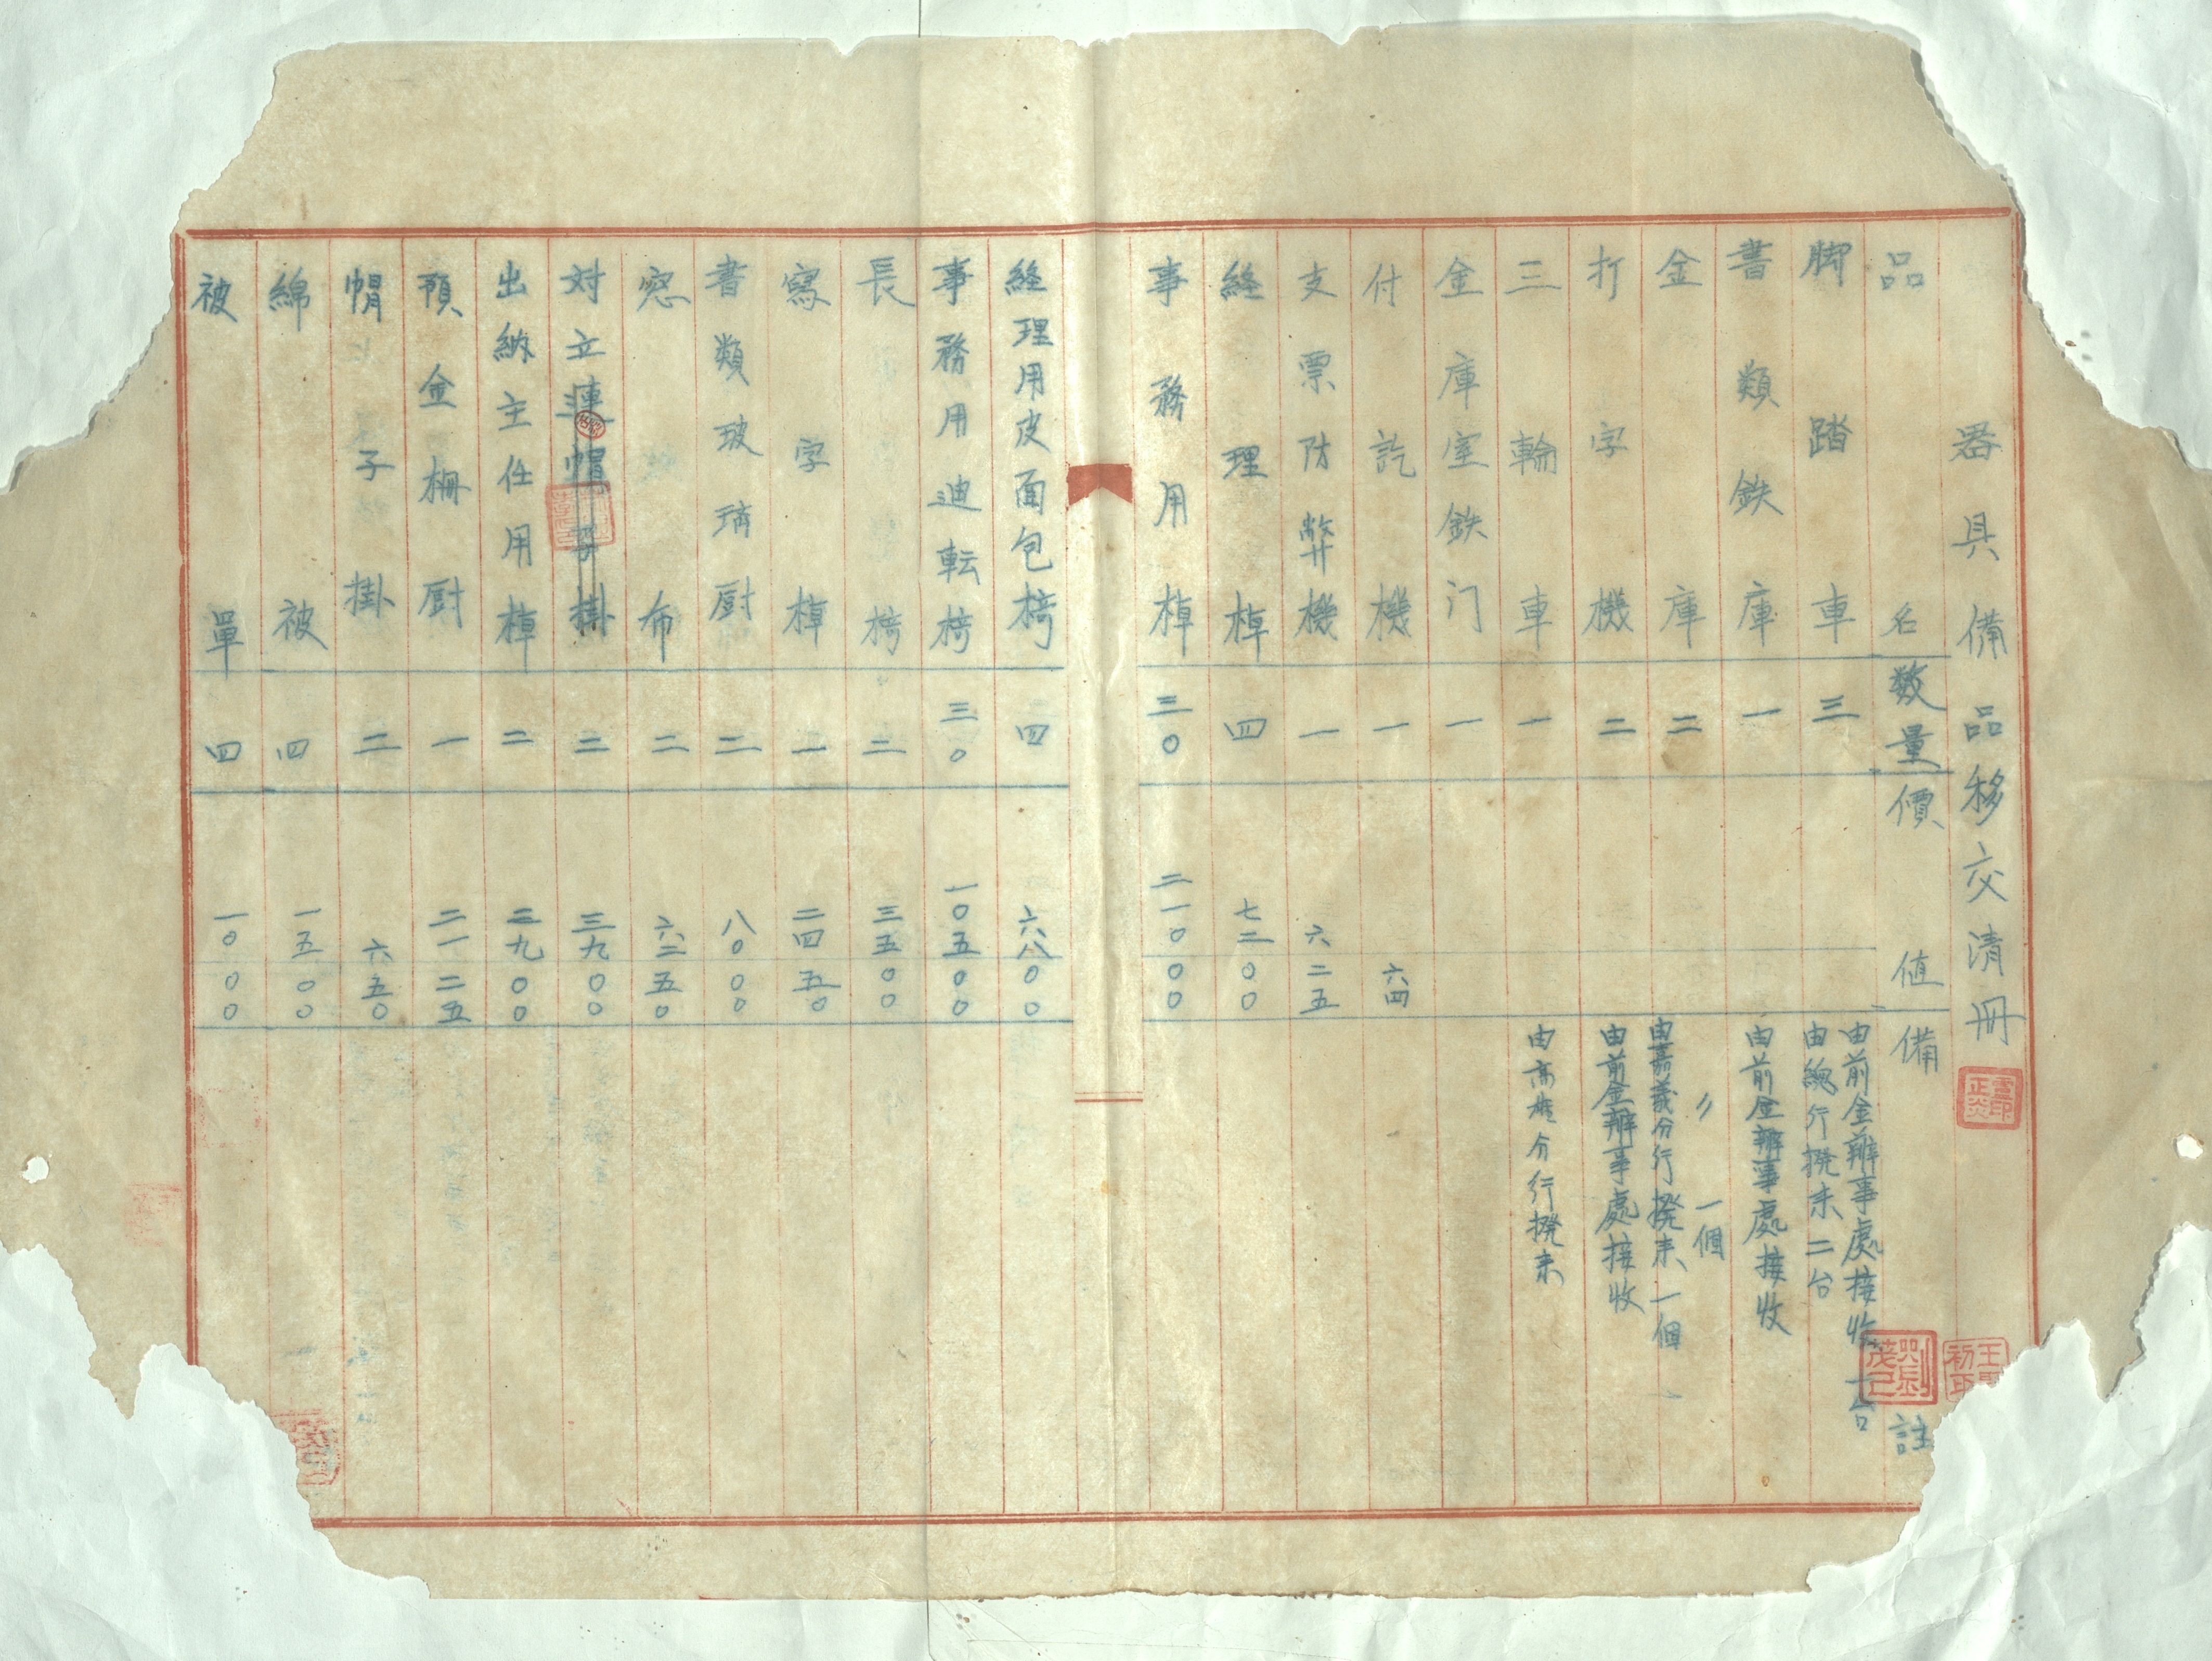 器具備品移交清冊
品名 数量 價值 備註
脚踏車 三 由前金辦事處接收一台
由總行撥来二台
書類鉄庫 一 由前金辦事處接收
金庫 二 〃 一個
由嘉義分行撥来一個
打字機 二 由前金辦事處接收
三輪車 一 由高雄分行撥来
金庫室鉄门 一
付訖機 一 六四
支票防弊機 一 六二五
経理棹 四 七二〇〇
事務用棹 三〇 二一〇〇〇
経理用皮面包椅 四 六八〇〇
事務用迪転椅 三〇 一〇五〇〇
長椅 二 三五〇〇
寫字棹 一 二四五〇
書類玻璃厨 二 八〇〇〇
窓布 二 六二五〇
対立連帽子掛 二 三九〇〇
出納主任用棹 二 二九〇〇
預金柵厨 一 二一二五
帽子掛 二 六五〇
綿被 四 一五〇〇
被單 四 一〇〇〇